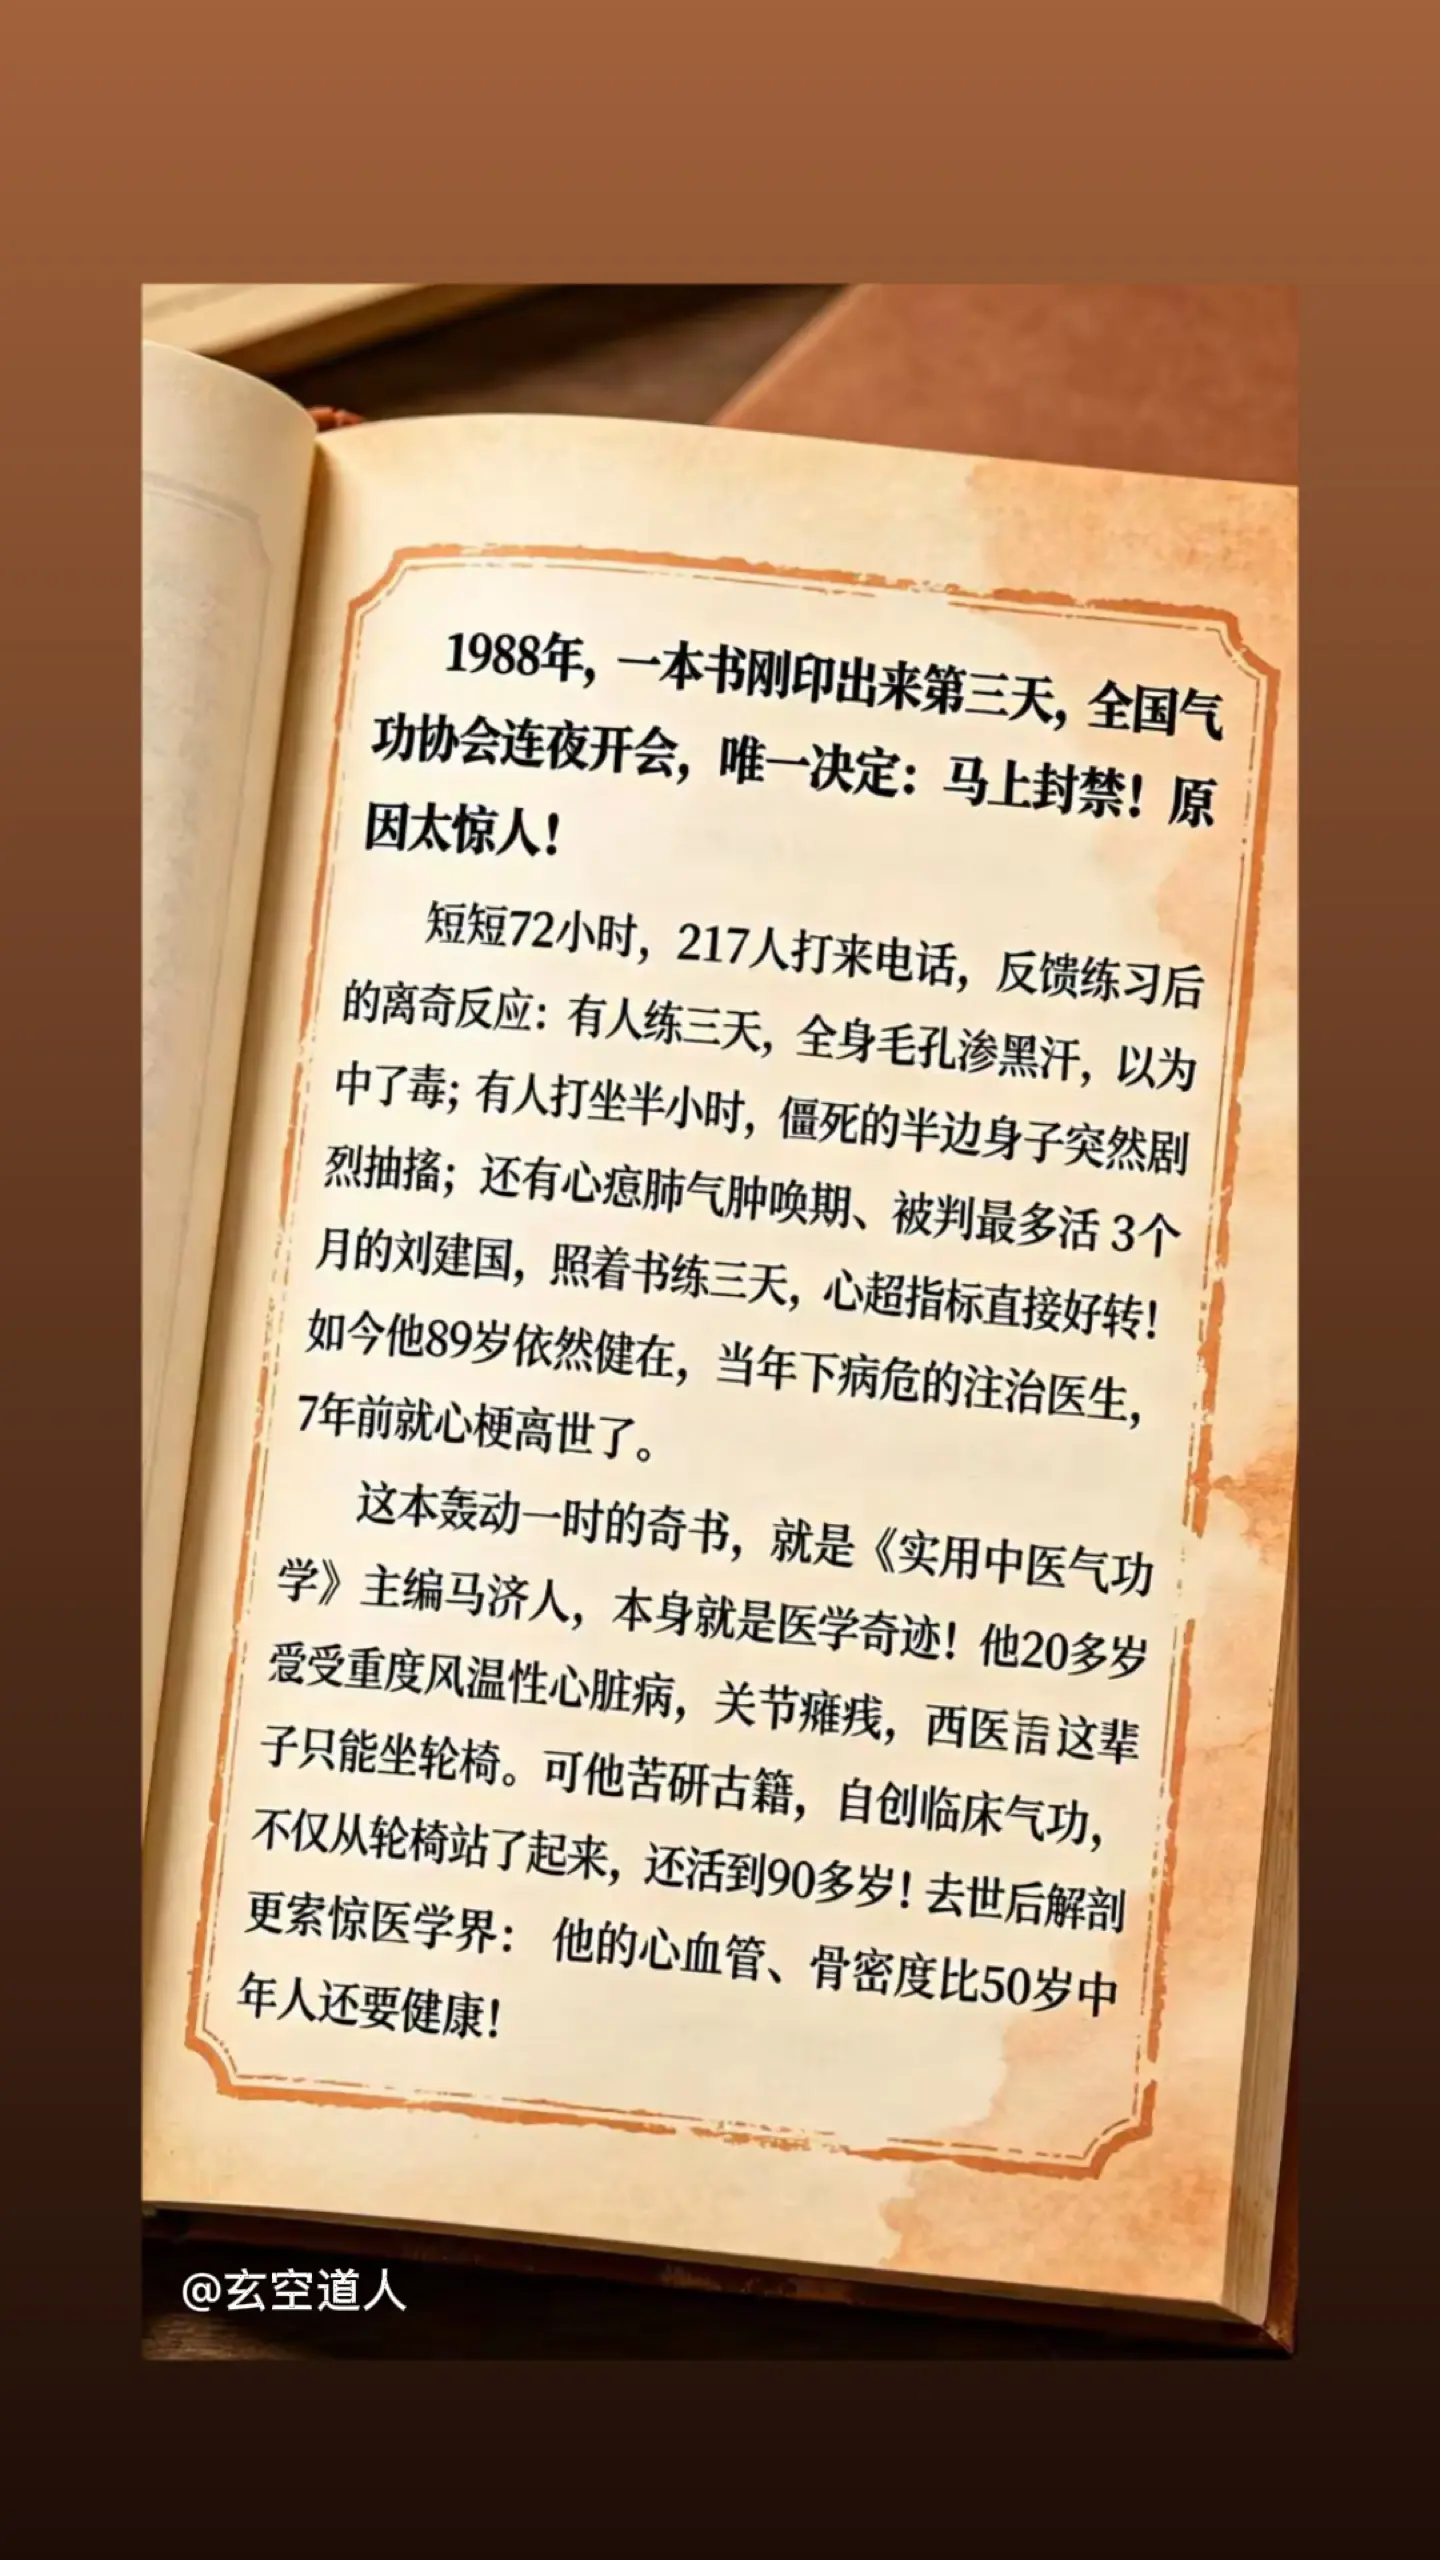 1988年，一本书刚印出来第三天，全国气
功协会连夜开会，唯一决定：马上封禁！原
因太惊人！
短短72小时，217人打来电话，反馈练习后
的离奇反应：有人练三天，全身毛孔渗黑汗，以为
中了毒；有人打坐半小时，僵死的半边身子突然剧
烈抽搐；还有心悹肺气肿唤期、被判最多活 3个
月的刘建国，照着书练三天，心超指标直接好转！
如今他89岁依然健在，当年下病危的注治医生，
7年前就心梗高世了。
这本轰动一时的奇书，就是《实用中医气功
学》主编马济人，本身就是医学奇迹！他20多岁
受重度风温性心脏病，关节瘫，西医这辈
子只能坐轮椅。可他苦研古籍，自创临床气功，
不仅从轮椅站了起来，还活到90多岁！去世后解剖
更索惊医学界： 他的心血管、骨密度比50岁中
年人还要健康！
@玄空道人